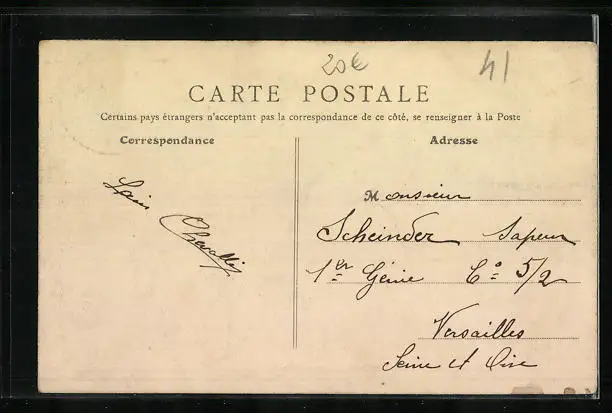 20€
41
CARTE POSTALE
Certains pays étrangers n'acceptant pas la correspondance de ce côté, se renseigner à la Poste
Correspondance
Adresse
Monsieur
Scheinder Sapeur
1er Génie Cie 5/2
Versailles
Seine et Oise